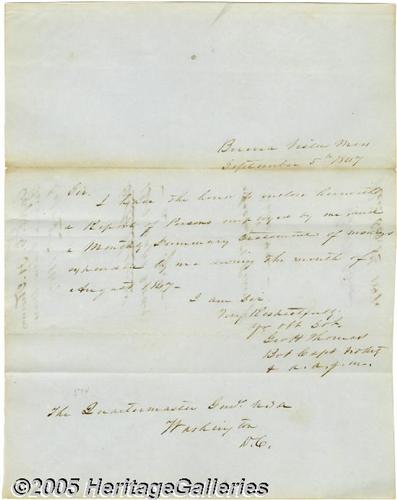 Buena Vista Mex
September 5th 1847
Sir.
I have the honor to enclose herewith
a Report of Persons employed by me and
a Monthly Summary Statement of moneys
expended by me during the month of
August 1847.
I am Sir
Very Respectfully
Yr Obt Svt.
Geo H Thomas
Bvt Capt
& a. a. q. m.
574
The Quartermaster Genl. U.S.A
Washington
D.C.
©2005 HeritageGalleries